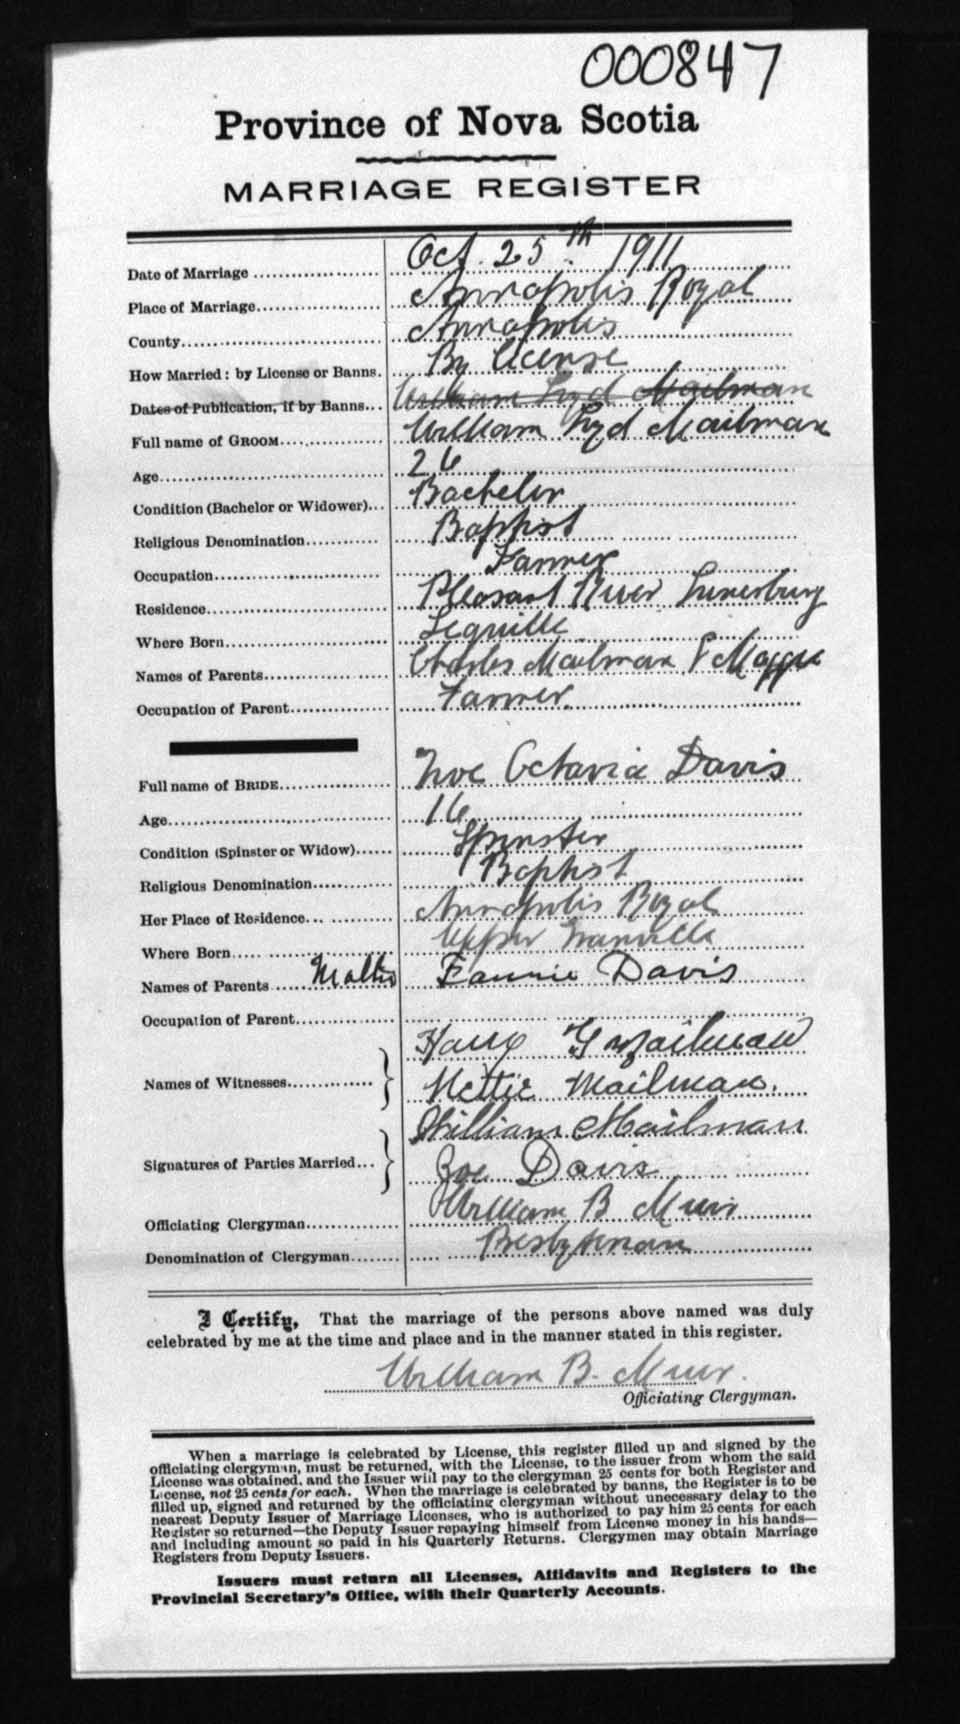 000847
Province of Nova Scotia
MARRIAGE REGISTER
Date of Marriage Oct. 25th 1911
Place of Marriage Annapolis Royal
County Annapolis
How Married: by License or Banns. By license
Dates of Publication, if by Banns William Loyd Mailman
Full name of GROOM William Loyd Mailman
Age 26
Condition (Bachelor or Widower) Bachelor
Religious Denomination Baptist
Occupation Farmer
Residence Pleasant River Lunenburg
Where Born Lequille
Names of Parents Charles Mailman & Maggie
Occupation of Parent Farmer.
Full name of BRIDE Zoe Octavia Davis
Age 16
Condition (Spinster or Widow) Spinster
Religious Denomination Baptist
Her Place of Residence Annapolis Royal
Where Born Upper Granville
Names of Parents Mother Fannie Davis
Occupation of Parent
Harry G Mailman
Names of Witnesses Nettie Mailman.
William Mailman
Signatures of Parties Married Zoe Davis
Officiating Clergyman William B Muir
Denomination of Clergyman Presbyterian
I Certify, That the marriage of the persons above named was duly
celebrated by me at the time and place and in the manner stated in this register.
William B. Muir.
Officiating Clergyman.
When a marriage is celebrated by License, this register filled up and signed by the
officiating clergyman, must be returned, with the License, to the issuer from whom the said
License was obtained, and the Issuer will pay to the clergyman 25 cents for both Register and
License, not 25 cents for each. When the marriage is celebrated by banns, the Register is to be
filled up, signed and returned by the officiating clergyman without unecessary delay to the
nearest Deputy Issuer of Marriage Licenses, who is authorized to pay him 25 cents for each
Register so returned—the Deputy Issuer repaying himself from License money in his hands—
and including amount so paid in his Quarterly Returns. Clergymen may obtain Marriage
Registers from Deputy Issuers.
Issuers must return all Licenses, Affidavits and Registers to the
Provincial Secretary's Office, with their Quarterly Accounts.